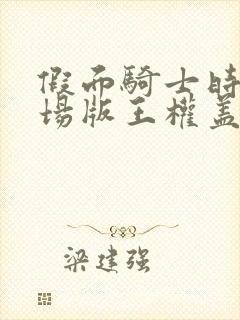 假而騎士時
場版王權蓋
梁建强